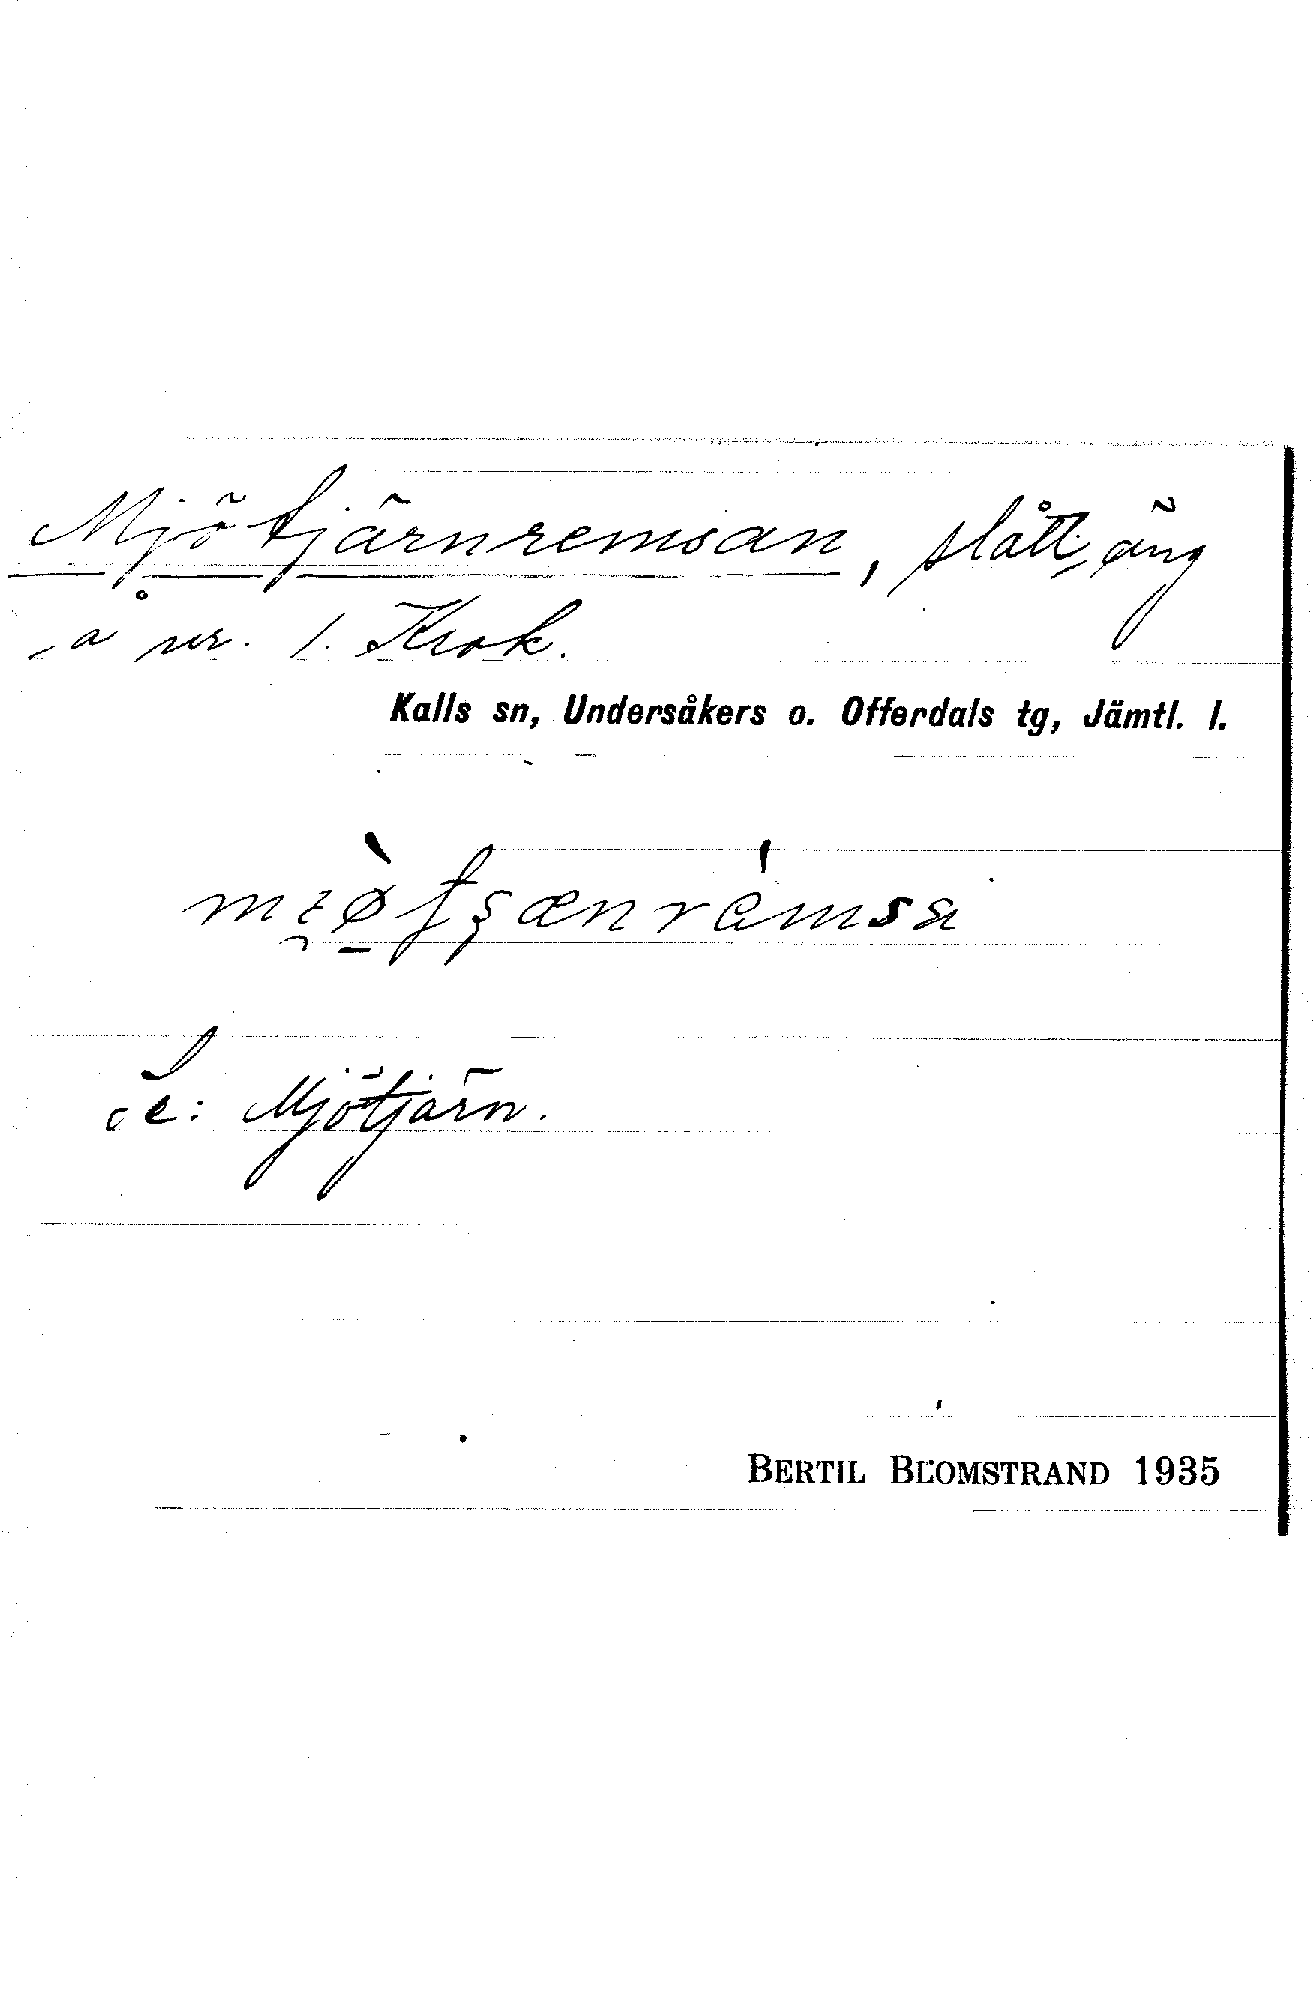 Mjötjärnremsan, slåttäng
å nr. 1. Krok.
Kalls sn, Undersåkers o. Offerdals tg, Jämtl. l.
Se: Mjötjärn.
BERTIL BLOMSTRAND 1935